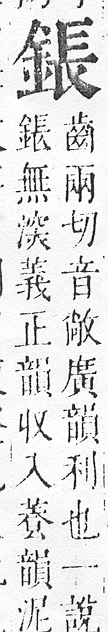 鋹
齒兩切音敞廣韻利也一說
鋹無深義正韻收入養韻泥